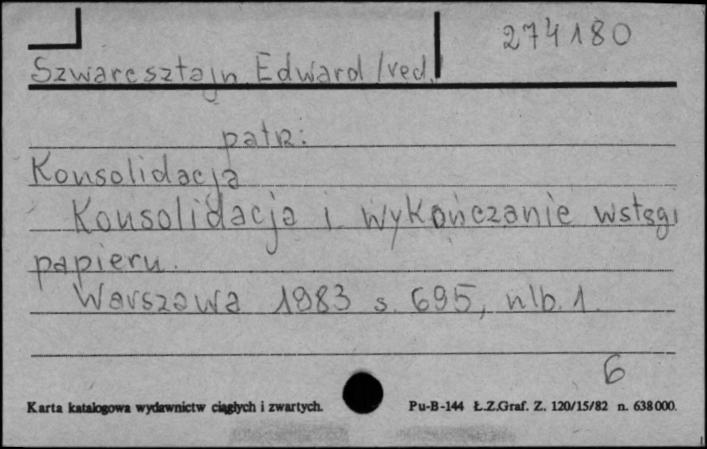 274180
Szwarcsztajn Edward /red./
patrz:
Konsolidacja
Konsolidacja i wykończanie wstęgi
papieru.
Warszawa 1983 s. 695, nlb. 1.
6
Karta katalogowa wydawnictw ciągłych i zwartych. Pu-B-144 Ł.Z.Graf. Z. 120/15/82 n. 638000.